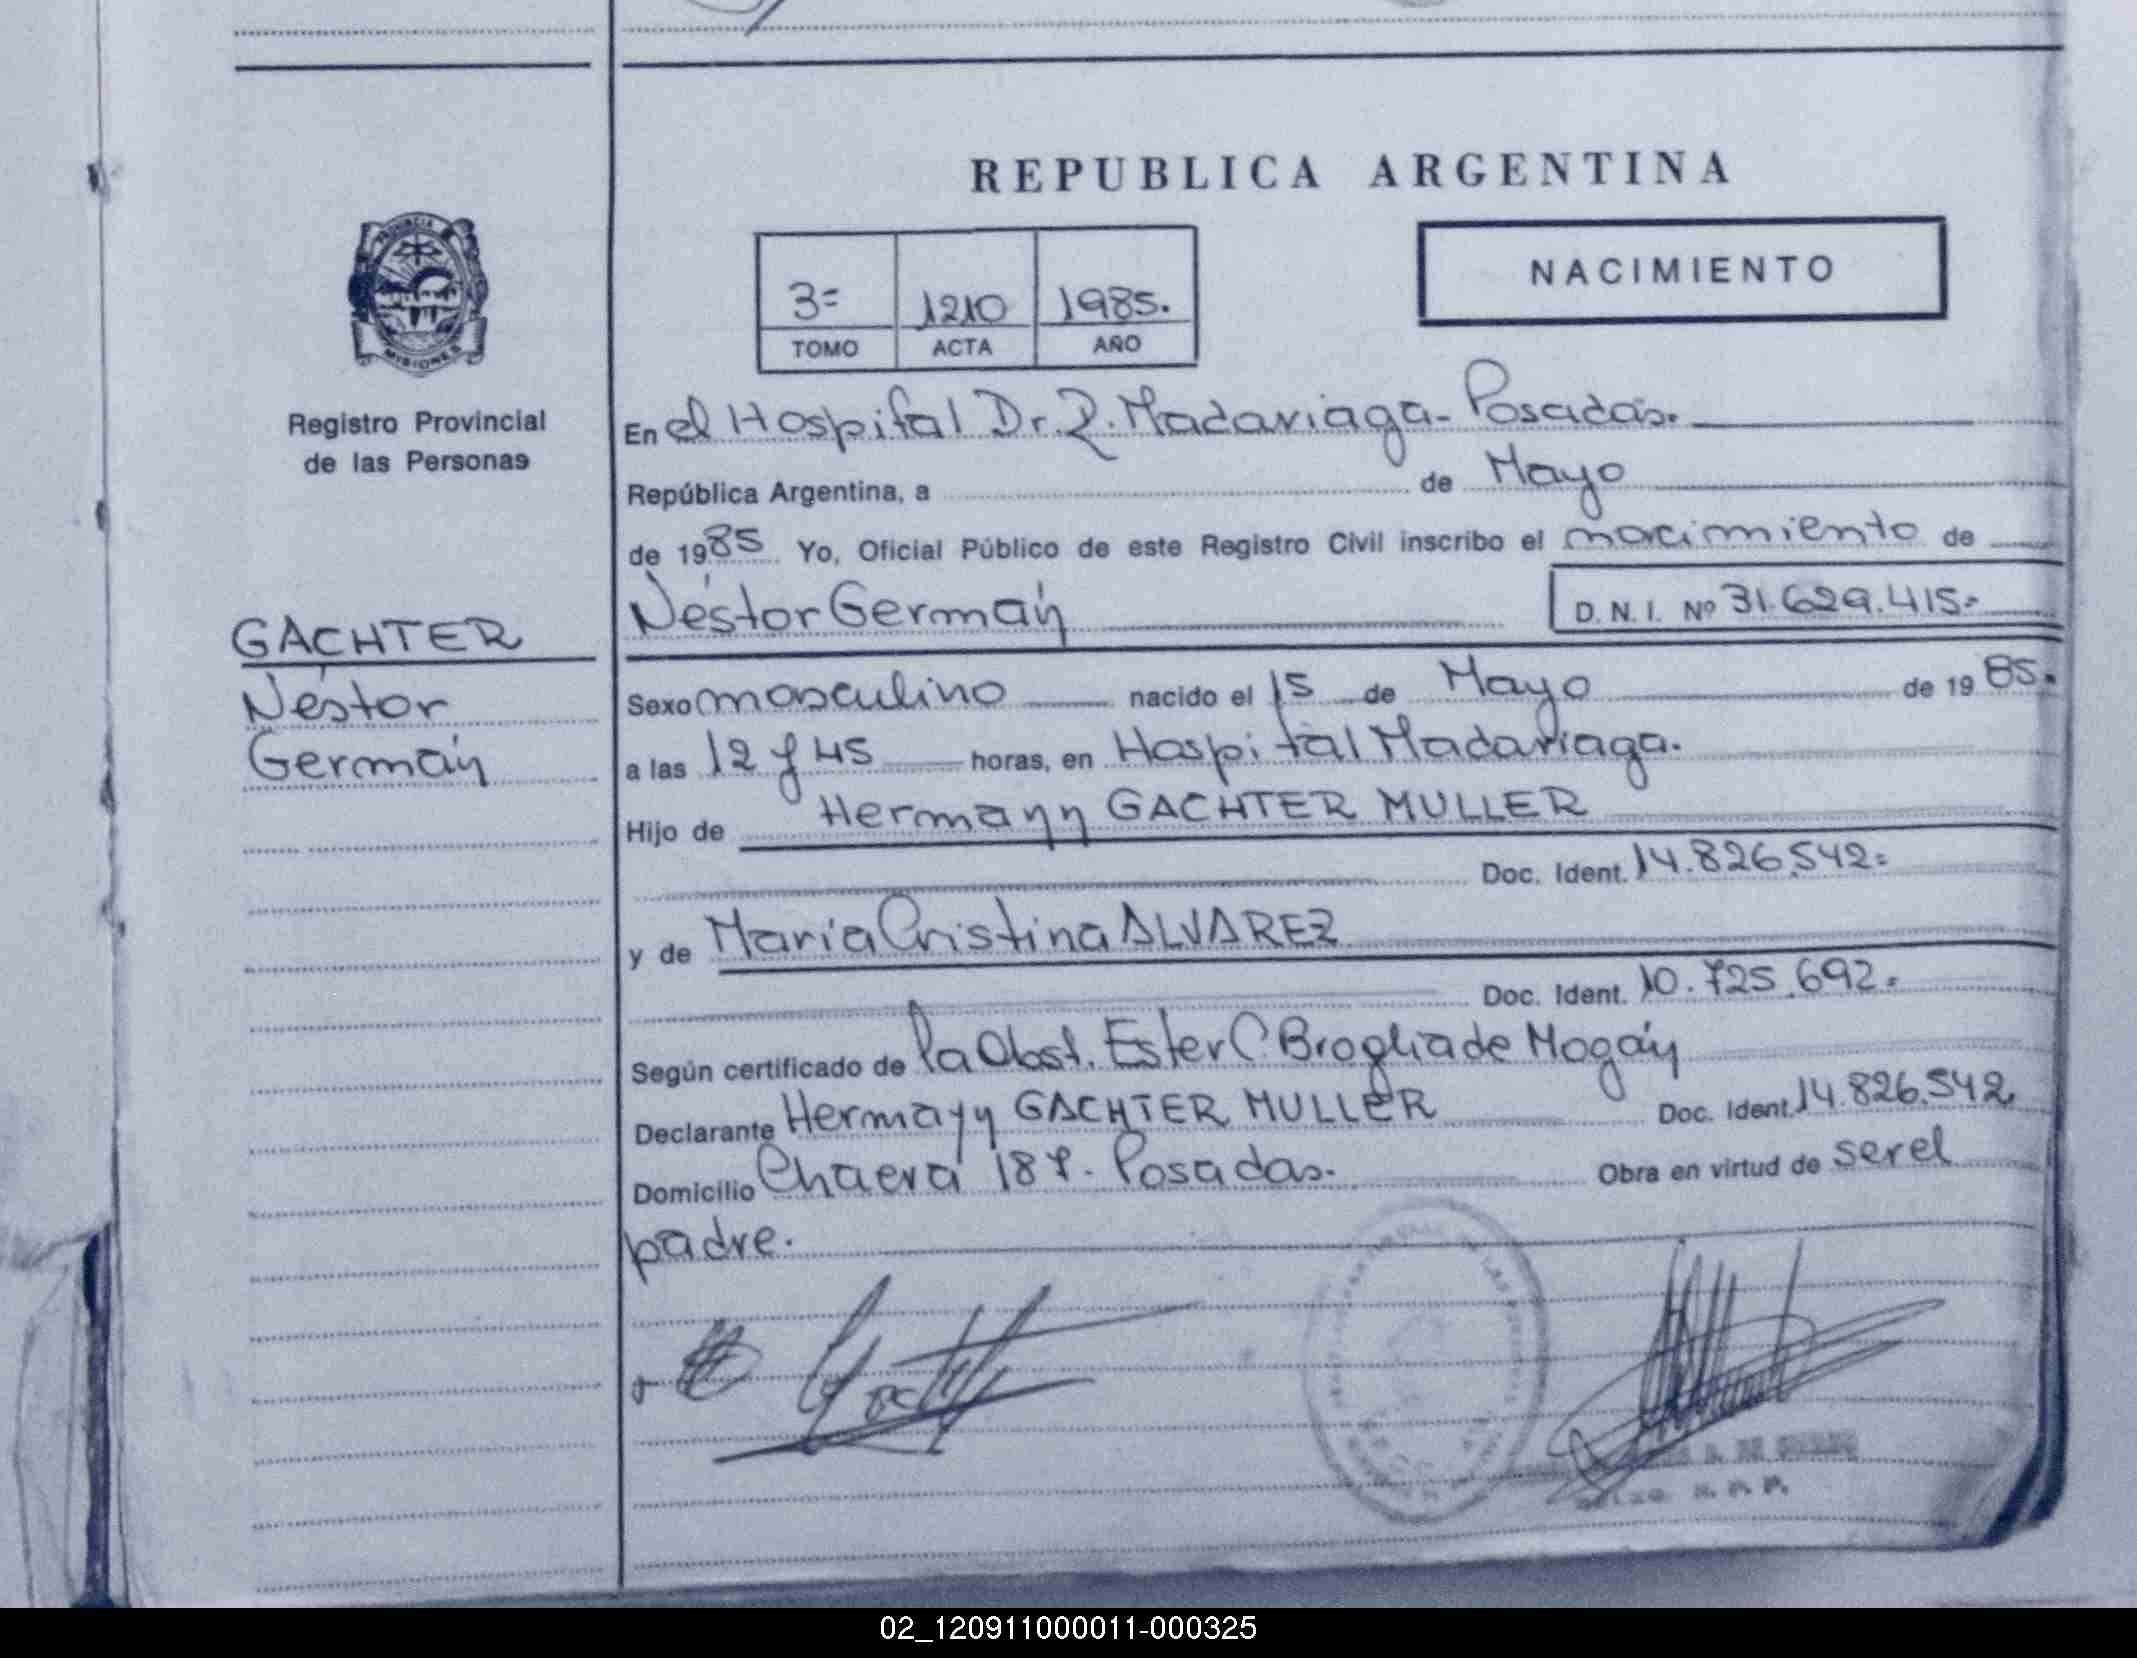 REPUBLICA ARGENTINA
PROVINCIA
MISIONES
Registro Provincial
de las Personas
3=
1210
1985.
TOMO
ACTA
AÑO
NACIMIENTO
En el Hospital Dr. R. Madariaga - Posadas.
República Argentina, a de Mayo
de 1985 Yo, Oficial Público de este Registro Civil inscribo el nacimiento de
Néstor Germán D. N. I. Nº 31.629.415.-
GACHTER
Néstor
Germán
Sexo masculino nacido el 15 de Mayo de 1985.
a las 12 y 45 horas, en Hospital Madariaga.
Hijo de Hermann GACHTER MULLER
Doc. Ident. 14.826.542=
y de María Cristina ALVAREZ
Doc. Ident. 10.725.692.-
Según certificado de la Obst. Ester C. Broglia de Mogán
Declarante Hermann GACHTER MULLER Doc. Ident. 14.826.542.
Domicilio 187. Posadas. Obra en virtud de ser el
padre.
02_120911000011-000325